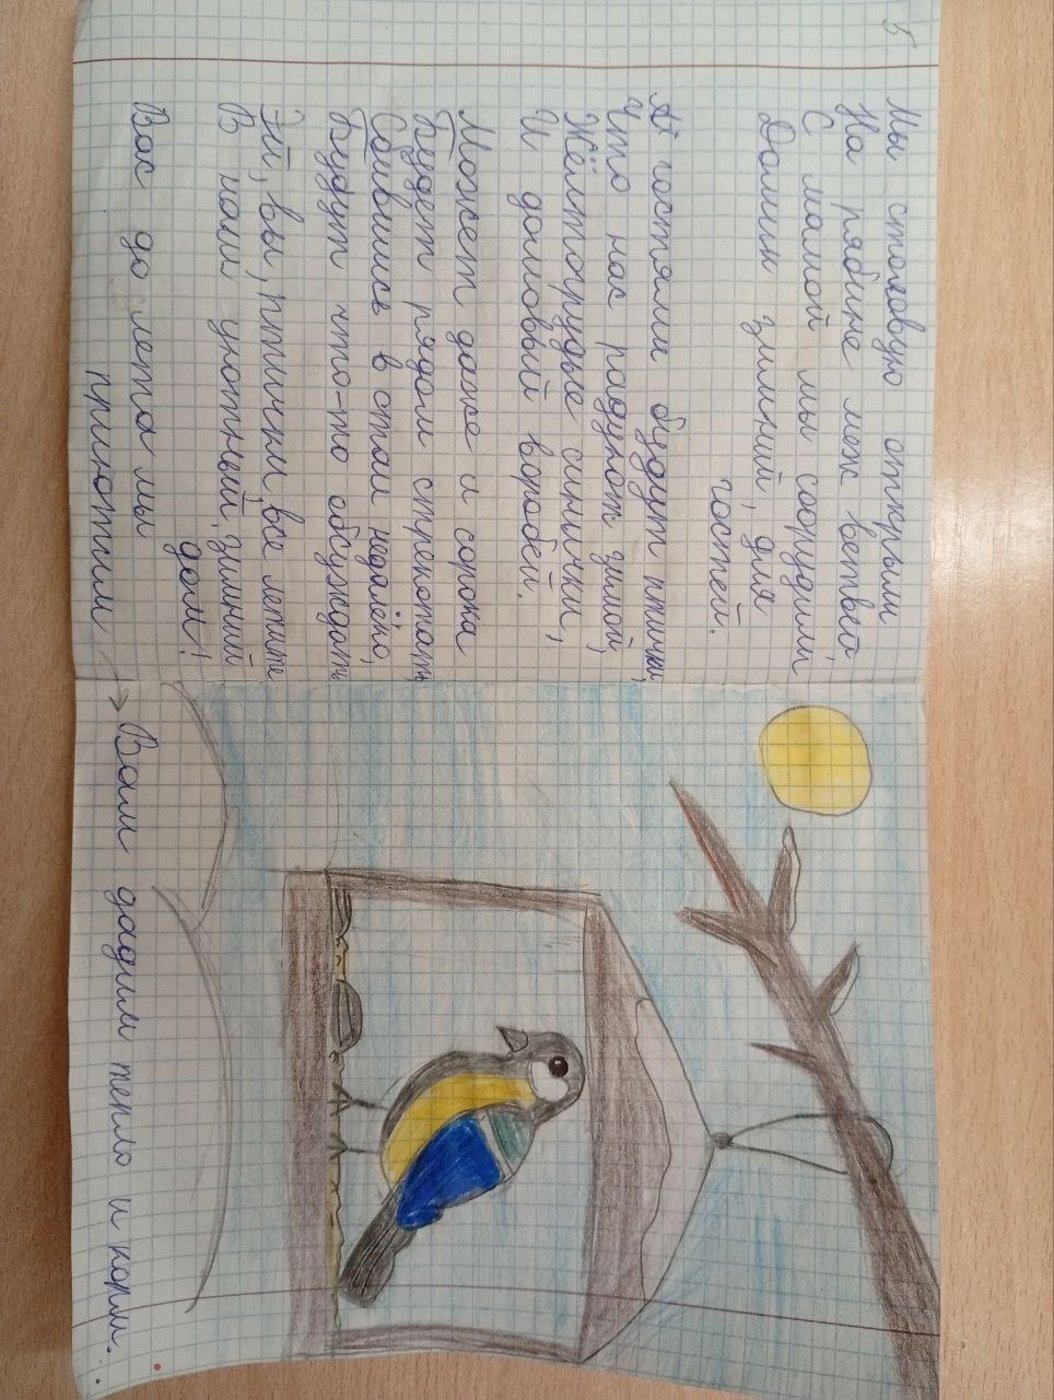 5
Мы столовую открыли
На рябине меж ветвей,
С мамой мы соорудили
Домик зимний, для
гостей.
А гостями будут птички,
Что нас радуют зимой,
Жёлтогрудые синички,
И домовый воробей.
Может даже и сорока
Будет рядом стрекотать,
Сбившись в стаи недалёко,
Будут что-то обсуждать
Эй, вы, птички, все летите
В наш уютный, зимний
дом!
Вас до лета мы
приютим
→ Вам дадим тепло и корм.